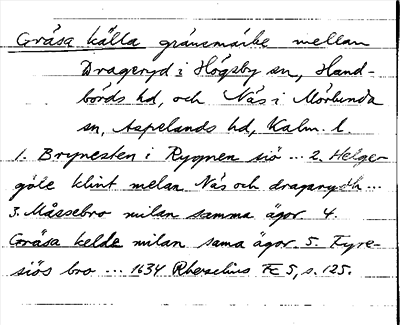 Gråsa källa gränsmärke mellan
Drageryd i Högsby sn, Hand-
börds hd, och Näs i Mörlunda
sn, Aspelands hd, Kalm. l.
1. Brynesten i Rygnen siö ... 2. Helge-
göle klint melan Näs och draganydh ...
3. Måssebro milan samma ägor. 4.
Gråsa kelde milan sama ägor. 5. Fyre-
siös bro ... 1634 Rhezelius Fc 5, s. 125.